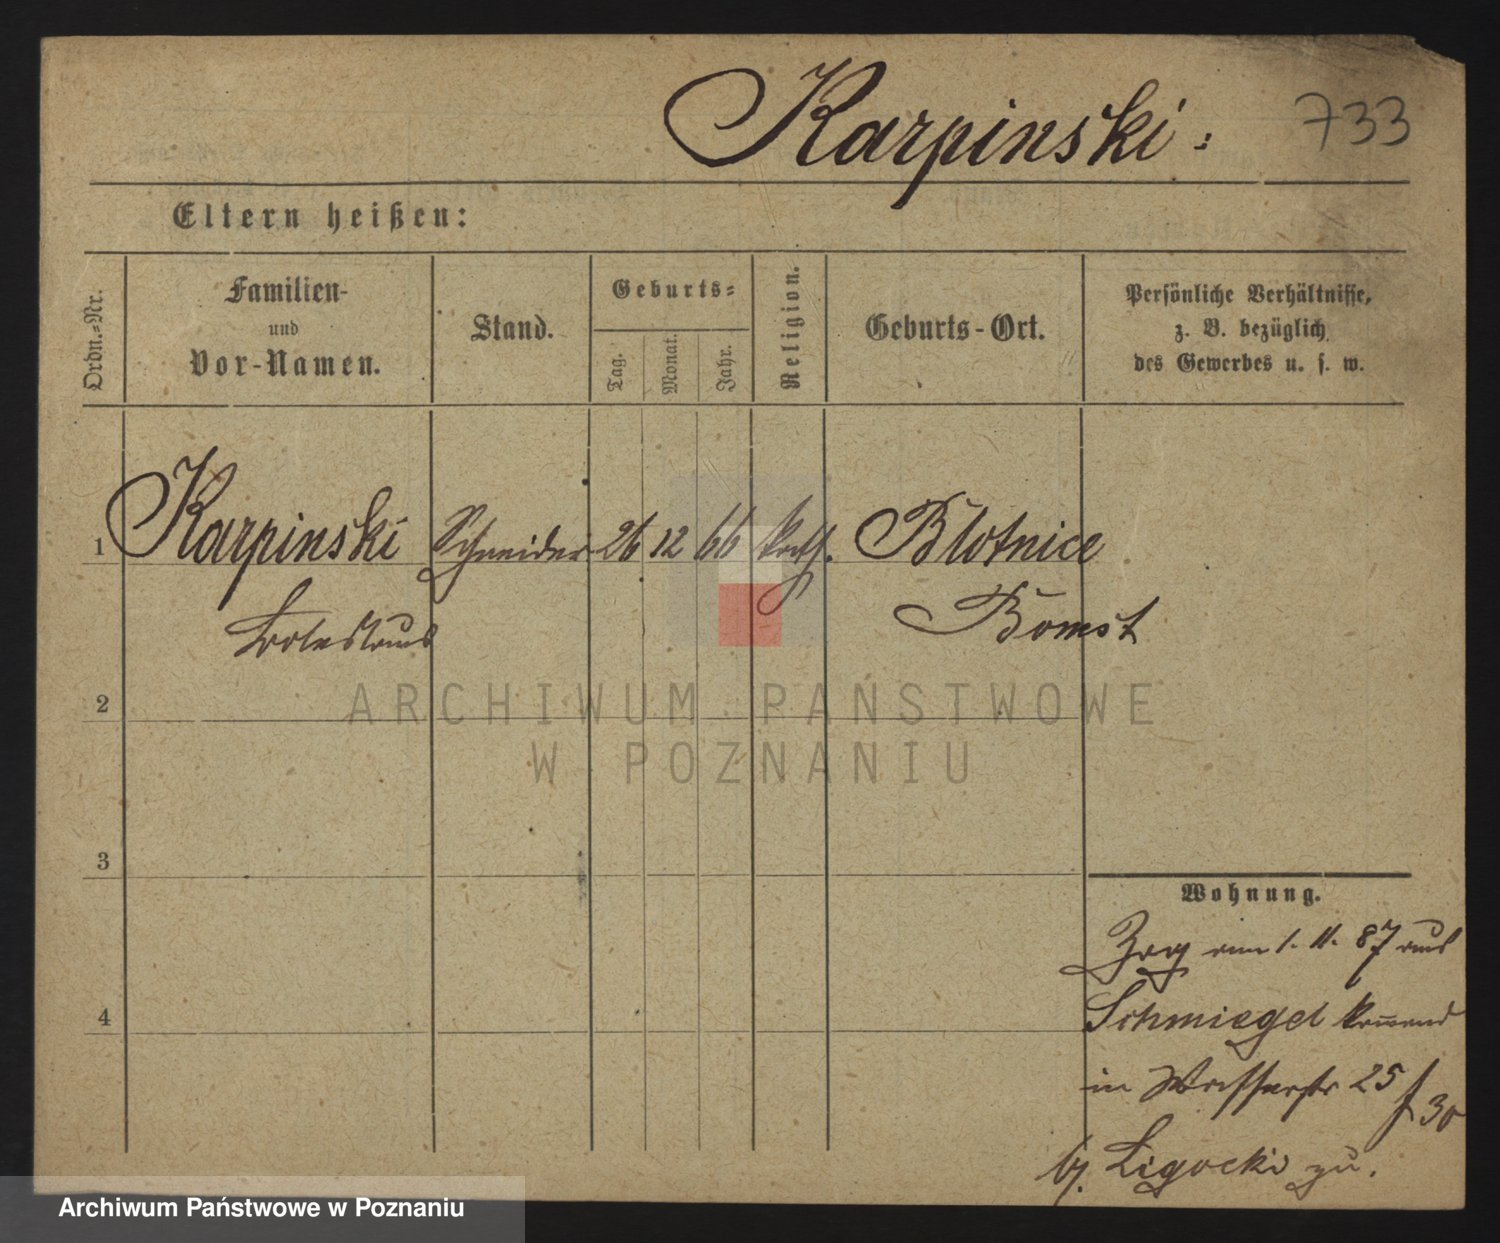 Karpinski.
733
Eltern heißen:
Ordn.-Nr.
Familien-
und
Vor-Namen.
Stand.
Geburts-
Tag.
Monat.
Jahr.
Religion.
Geburts-Ort.
Persönliche Verhältnisse,
z. B. bezüglich
des Gewerbes u. s. w.
1 Karpinski Schneider 26 12 66 kath. Blotnice
Bomst
2
3
4
ARCHIWUM PAŃSTWOWE
W POZNANIU
Wohnung.
Zog am 1. 11. 87 aus
Schmiegel kommend
in Wasserstr 25 / 30
bj. Ligocki zu.
Archiwum Państwowe w Poznaniu